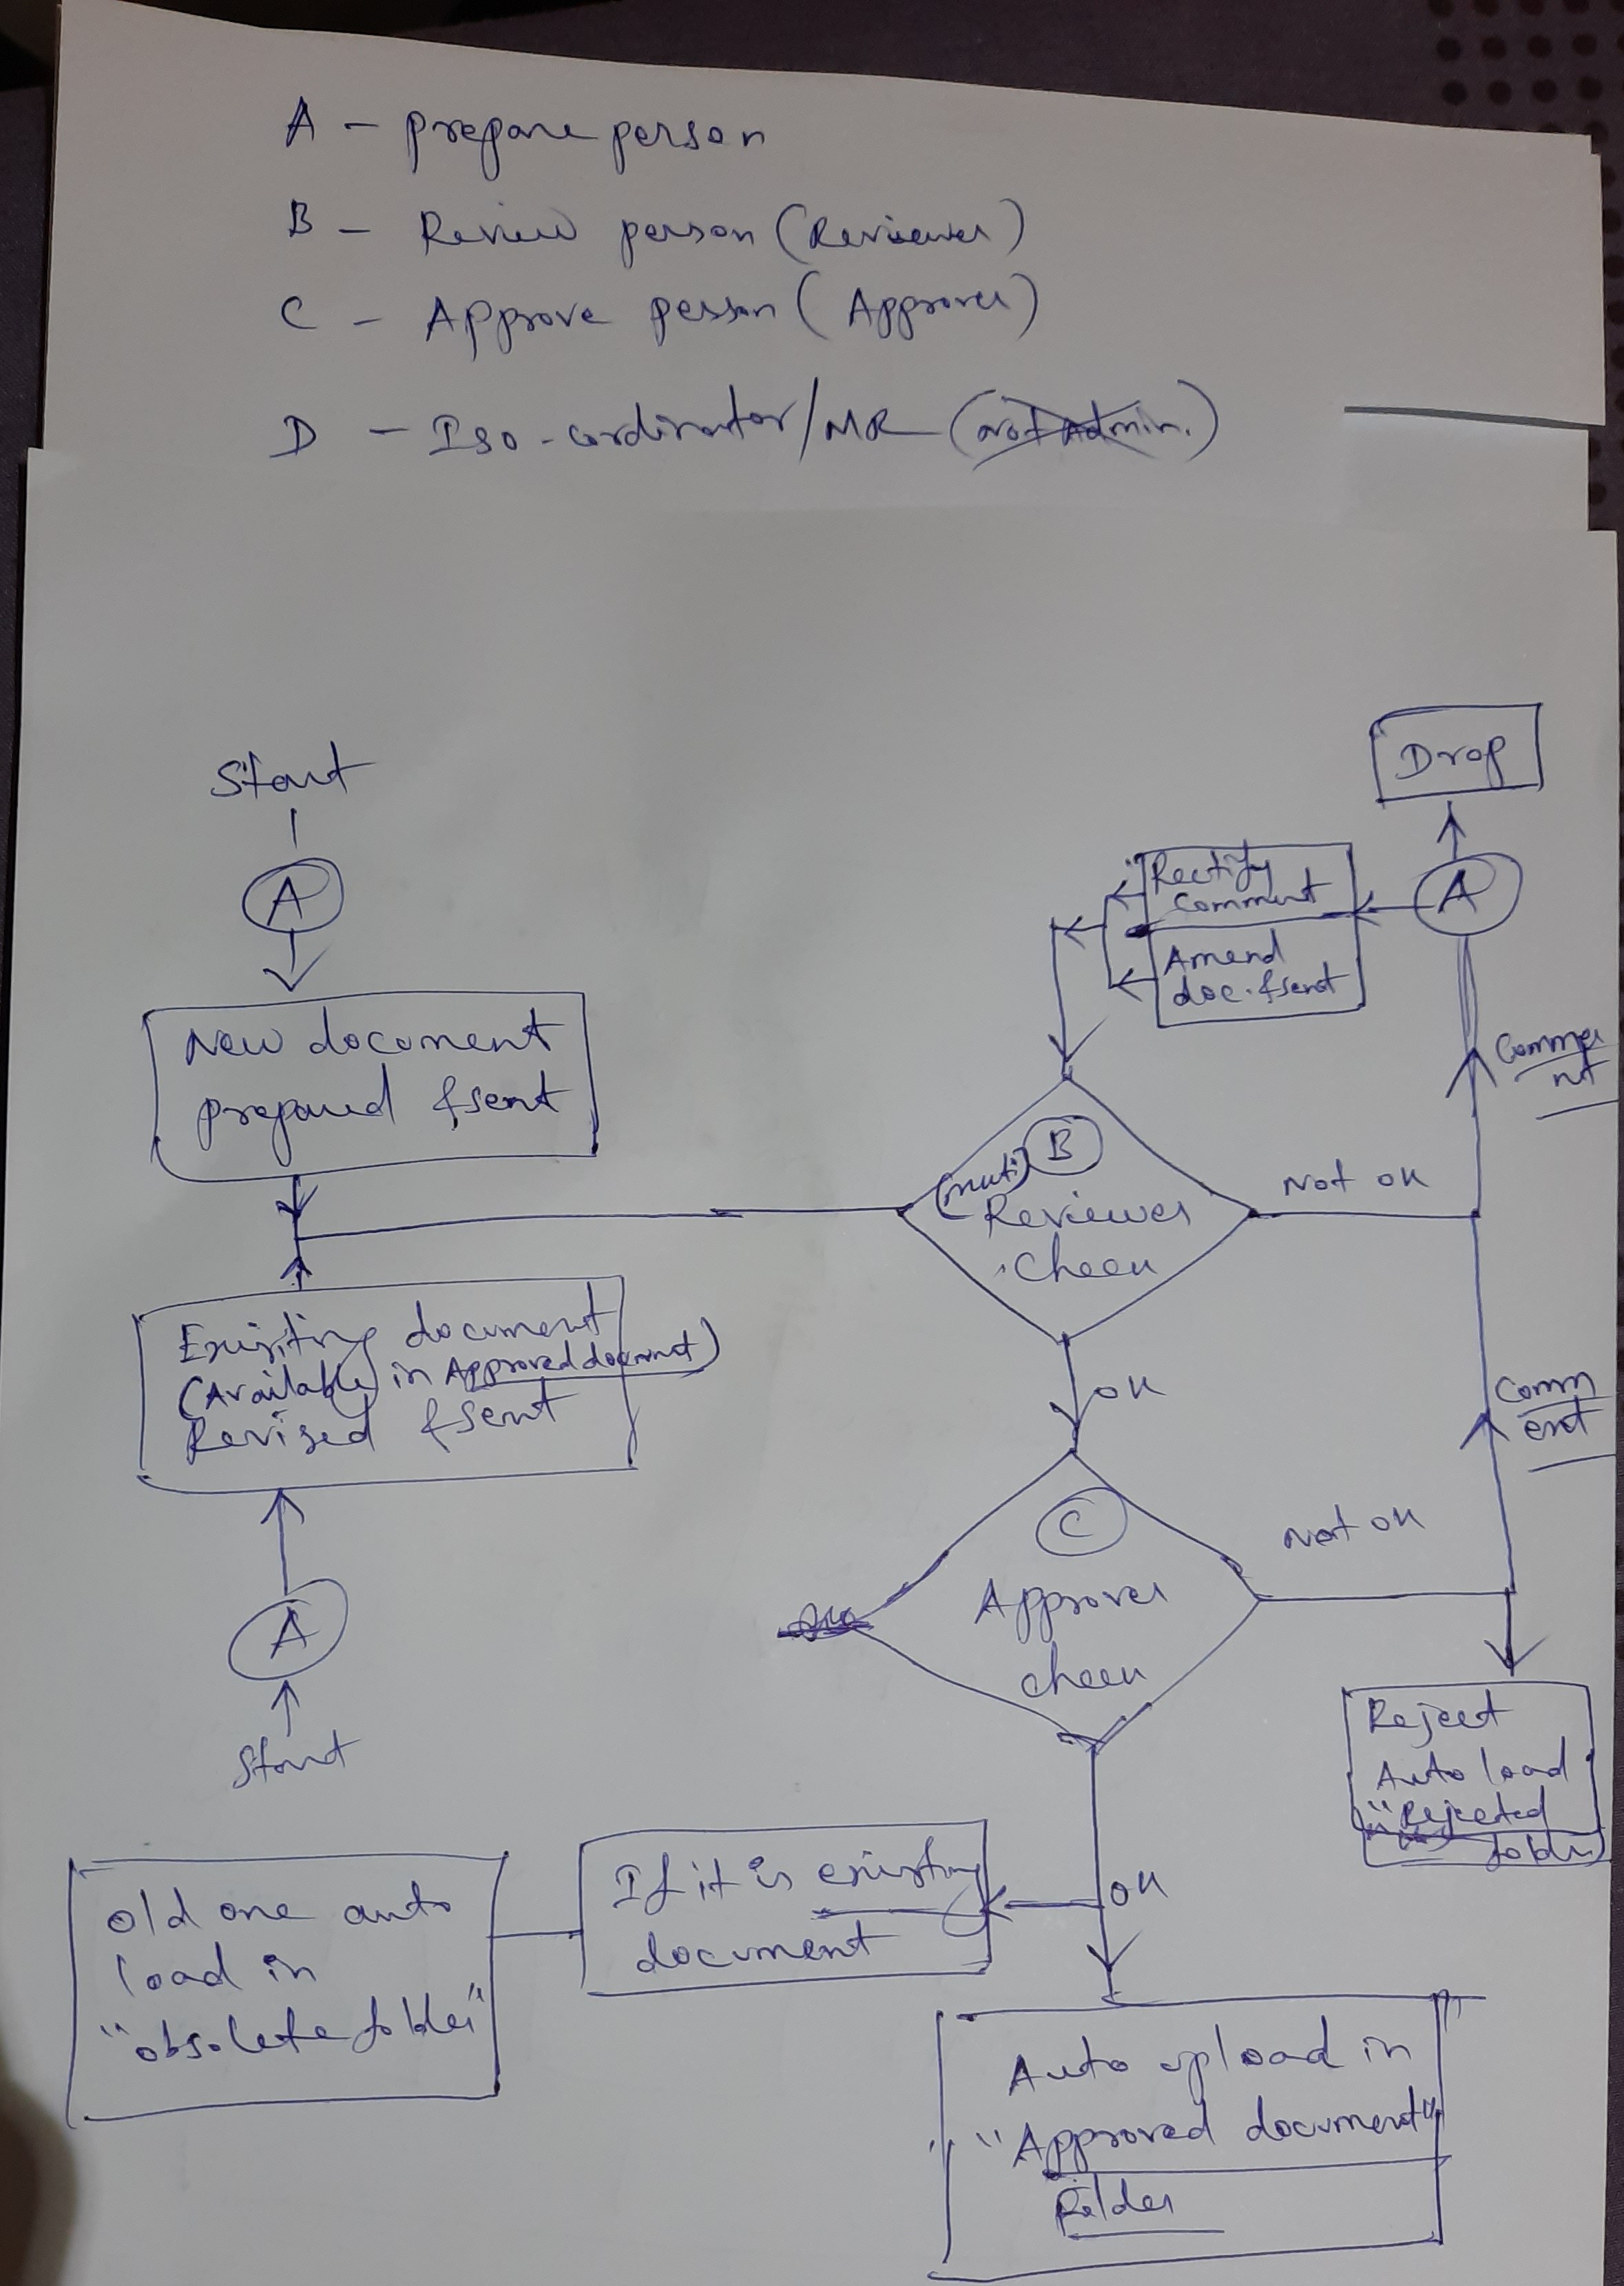 A - prepare person
B - Review person (Reviewer)
C - Approve person (Approver)
D - Iso-cordinator/MR (not Admin.)
Start
A
New document
prepared & sent
Existing document
(Available in Approved document)
Revised & sent
A
Start
Drop
A
Rectify
comment
Amend
doc. & sent
Comme
nt
B
(muti)
Reviewer
Check
Not ok
ok
Comm
ent
C
Approver
check
Not ok
Reject
Auto load
"Rejected
folder)
ok
If it is existing
document
old one auto
load in
"obsolete folder"
Auto upload in
"Approved document"
Folder